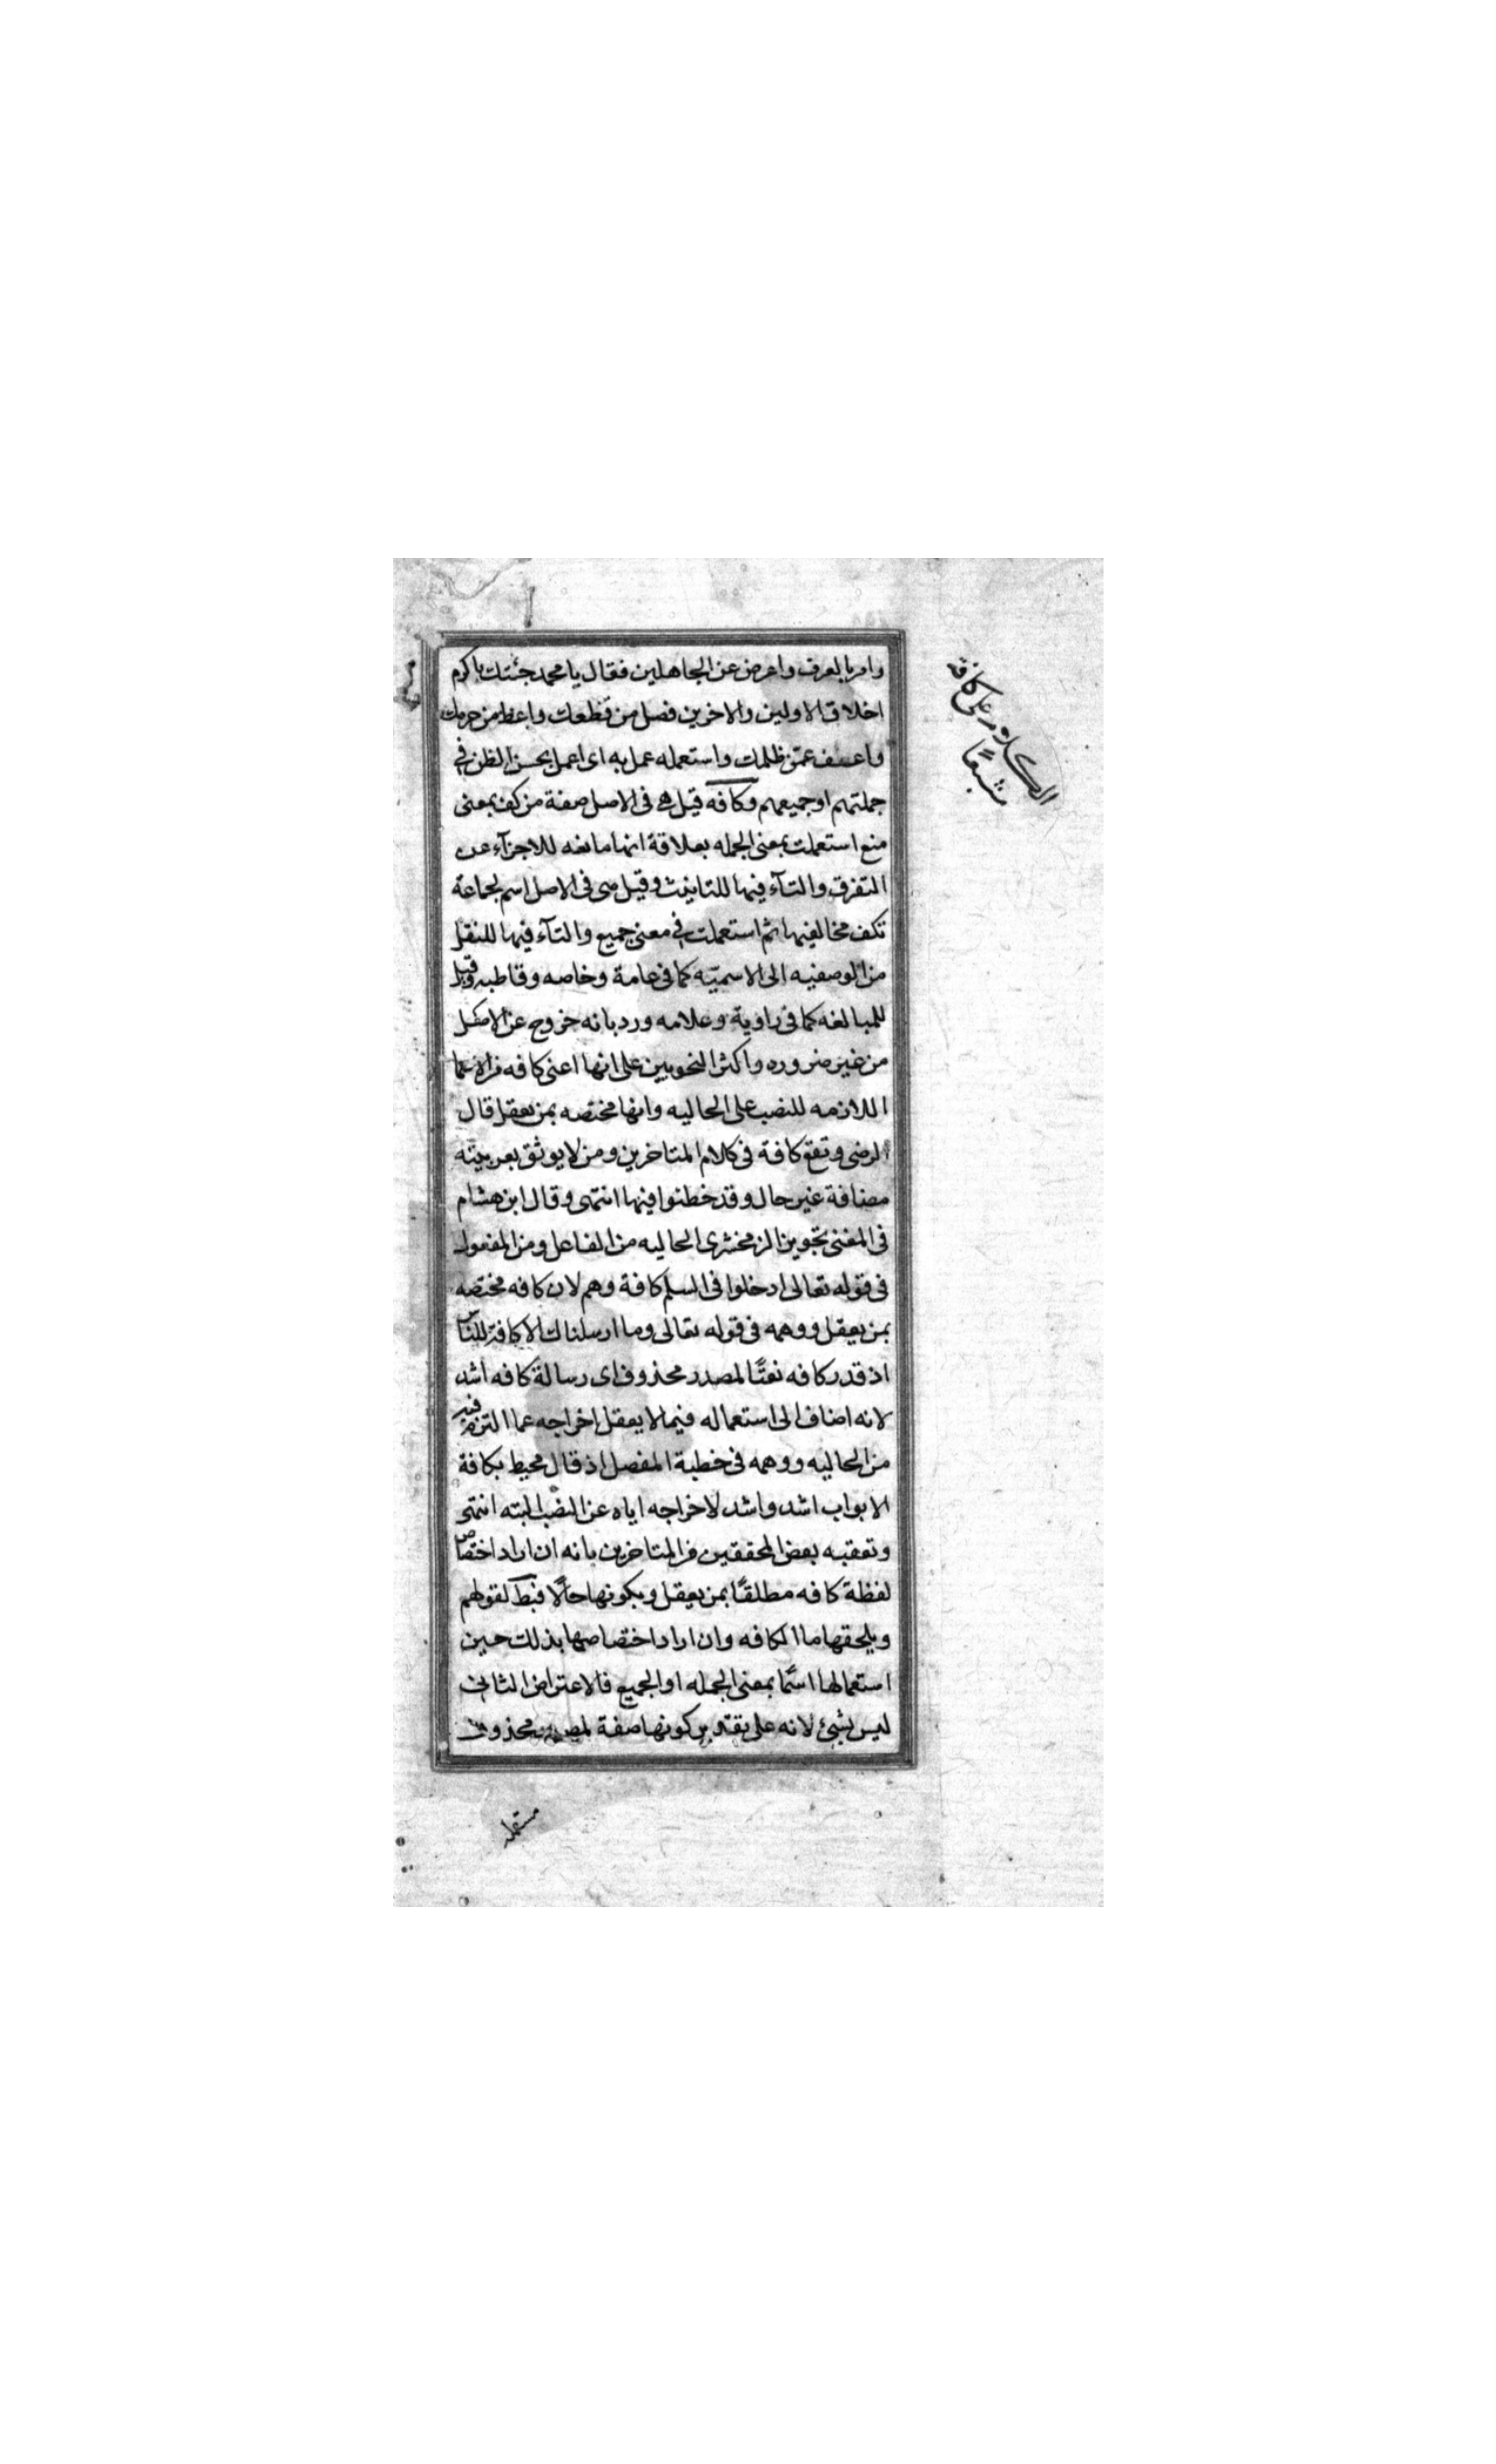 وامر بالعرف واعرض عن الجاهلين فقال يا محمد جئتك باكرم
اخلاق الاولين والاخرين فصل من قطعك واعط من حرمك
واعف عمّن ظلمك واستعمله عمل به اى اعمل بحسن الظن في
جملتهم او جميعهم وكافه قيل هى فى الاصل صفة من كف بمعنى
منع استعملت بمعنى الجمله بعلاقة انها مانعه للاجزآء عن
التفرق والتآء فيها للتانيث وقيل هى فى الاصل اسم لجماعة
تكف مخالفيها ثم استعملت فى معنى جميع والتآء فيها للنقل
من الوصفيه الى الاسميّه كما فى عامة وخاصه وقاطبه وقيل
للمبالغه كما فى راوية وعلامه ورد بانه خروج عن الاصل
من غير ضروره واكثر النحويين على انها اعنى كافه من الاسما
اللازمه للنصب على الحاليه وانها مختصه بمن يعقل قال
الرضى وتقع كافة فى كلام المتاخرين ومن لا يوثق بعربيته
مضافة غير حال وقد خطئوا فيها انتهى وقال ابن هشام
فى المغنى تجويز الزمخشرى الحاليه من الفاعل ومن المفعول
فى قوله تعالى ادخلوا فى السلم كافة وهم لان كافه مختصه
بمن يعقل ووهمه فى قوله تعالى وما ارسلناك الا كافة للناس
اذ قدر كافه نعتًا لمصدر محذوف اى رسالة كافه اشد
لانه اضاف الى استعماله فيما لا يعقل اخراجه عما التزم فيه
من الحاليه ووهمه فى خطبة المفصل اذ قال محيط بكافة
الابواب اشد واشد لاخراجه اياه عن النصب البته انتهى
وتعقبه بعض المحققين من المتاخرين بانه ان اراد اختصاص
لفظة كافه مطلقًا بمن يعقل وبكونها حالًا فبط لقولهم
ويلحقها ما الكافه وان اراد اختصاصها بذلك حين
استعمالها اسمًا بمعنى الجمله او الجميع فالاعتراض الثانى
ليس بشئ لانه على تقدير كونها صفة لمصدر محذوف
مستعمله
الكلام على كافة
مشبعًا